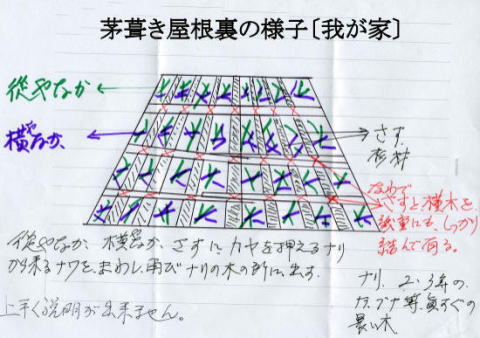 茅葺き屋根裏の様子〔我が家〕
従やなか
横やなか
さす
杉材
なわで
さすと横木を
厳重にも、しっかり
結んで有る。
従やなか 横やなか さすに、カヤを押えるナリ
から来るナワを、まわし、再びナリの木の所に出す。
上手く説明が出来ません。
ナリ 2、3年の
ナラ、ブナ等、真すぐの
長い木